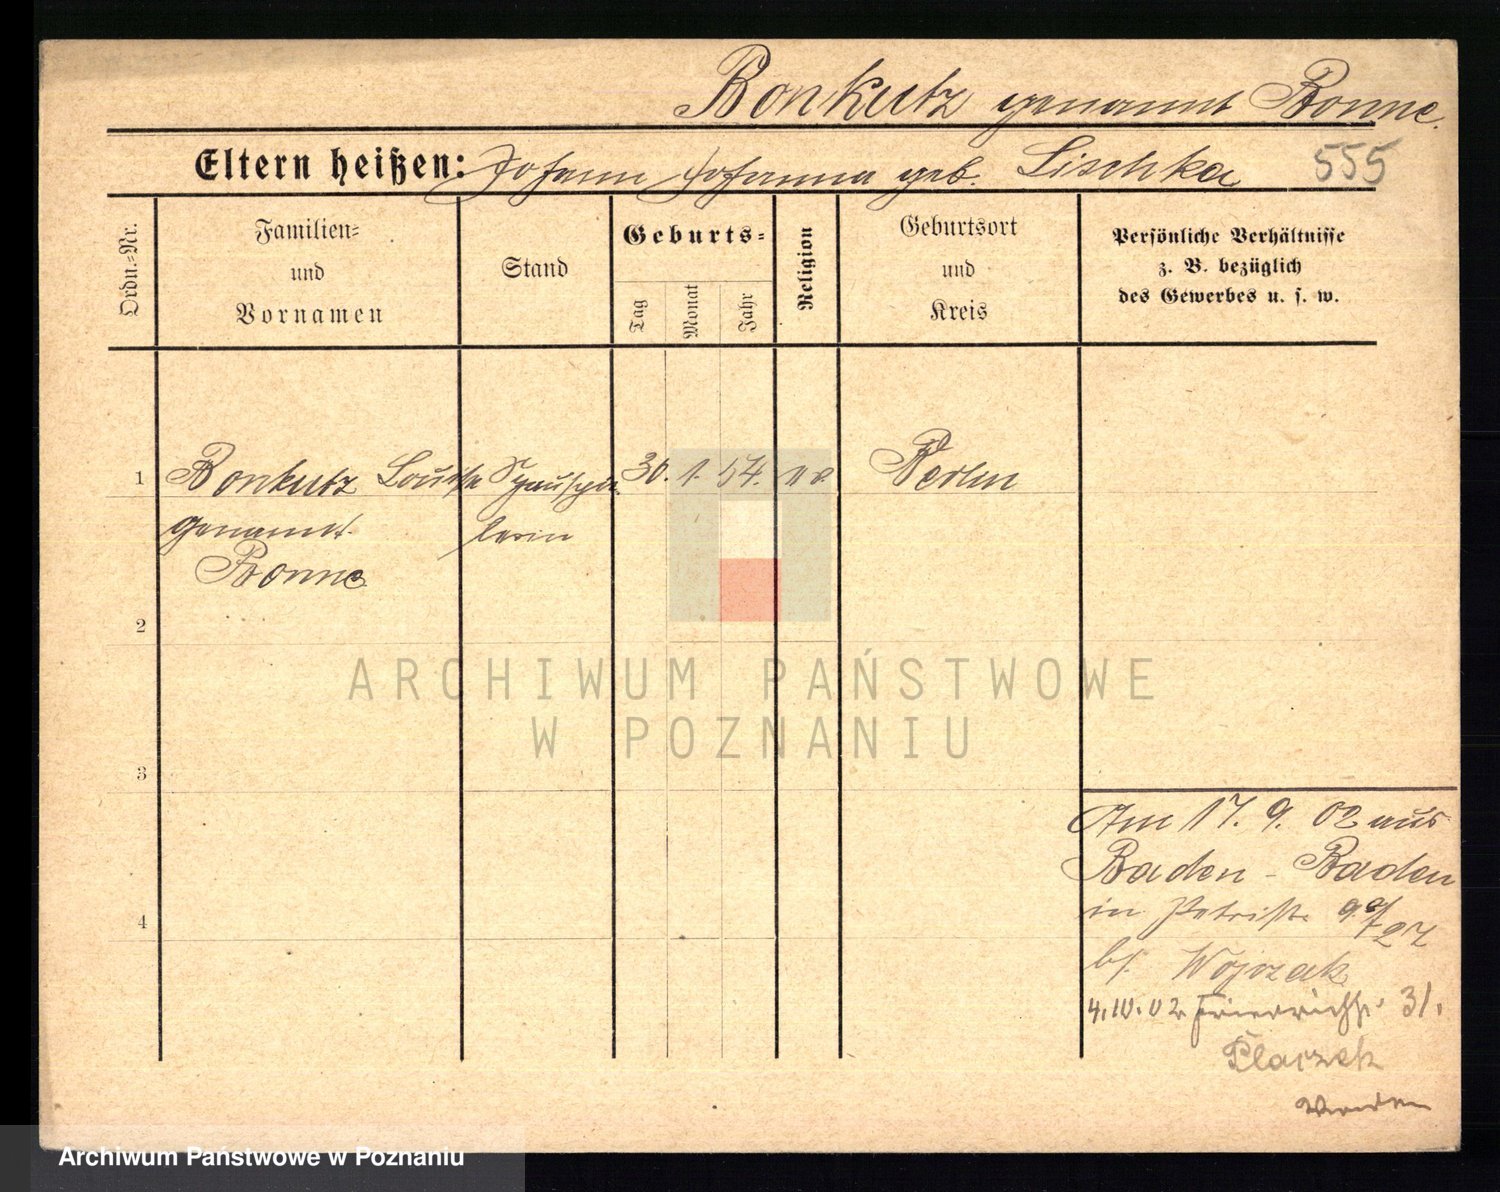 Bonkutz genannt Bonne.
Eltern heißen: Johann Johanna geb. Lischka
555
Ordn.=Nr.
Familien=
und
Vornamen
Stand
Geburts=
Tag
Monat
Jahr
Religion
Geburtsort
und
Kreis
Persönliche Verhältnisse
z. B. bezüglich
des Gewerbes u. s. w.
1
Bonkutz Louise Schauspie
30. 1. 54. ev.
Berlin
genannt
lerin
Bonne
2
ARCHIWUM PAŃSTWOWE
W POZNANIU
3
Am 17. 9. 02 aus
Baden - Baden
in Petristr.
4
bs. Wojczak
4. 10. 02 Friedrichstr. 31.
Placzek
Archiwum Państwowe w Poznaniu